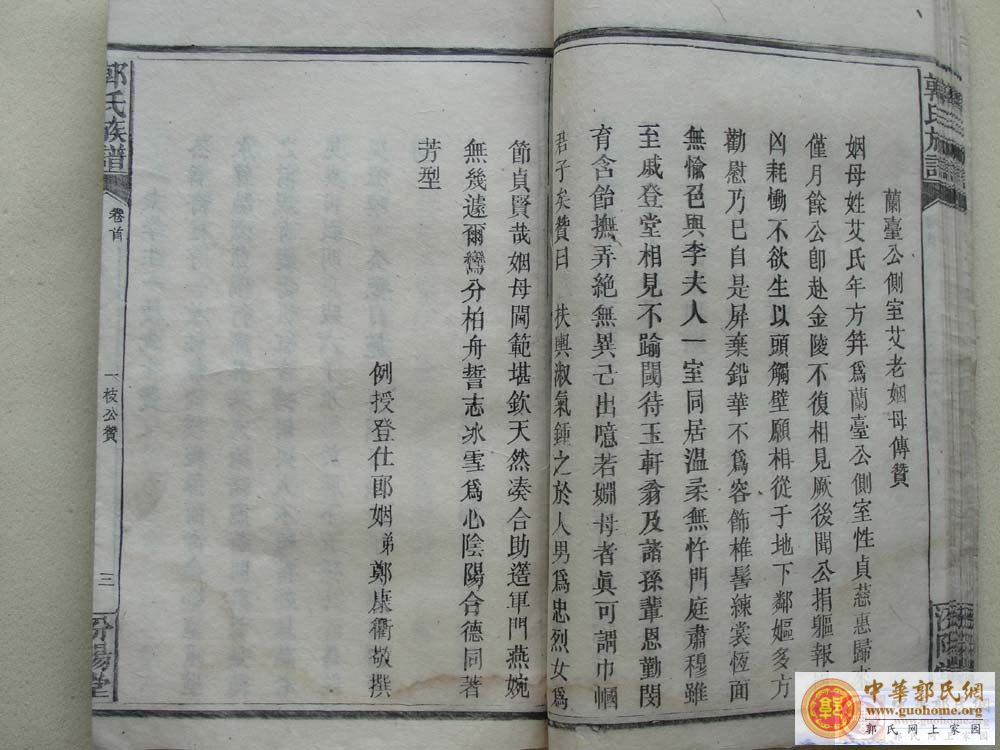 郭氏族譜
蘭臺公側室艾老姻母傳贊
姻母姓艾氏年方笄爲蘭臺公側室性貞慈惠歸
僅月餘公卽赴金陵不復相見厥後聞公捐軀報
凶耗慟不欲生以頭觸壁願相從于地下鄰嫗多方
勸慰乃已自是屏棄鉛華不爲容飾椎髻練裳恆面
無愉色與李夫人一室同居溫柔無忤門庭肅穆雖
至戚登堂相見不踰閾待玉軒翁及諸孫輩恩勤閔
育含飴撫弄絕無異己出噫若姻母者眞可謂巾幗
君子矣贊曰 扶輿淑氣鍾之於人男爲忠烈女爲
節貞賢哉姻母閫範堪欽天然凑合助簉軍門燕婉
無幾遽爾鸞分柏舟誓志冰雪爲心陰陽合德同著
芳型
例授登仕郎姻弟鄭康衢敬撰
郭氏族譜
卷首
一枝公贊
三
汾陽堂
中華郭氏網
www.guohome.org
郭氏網上家園